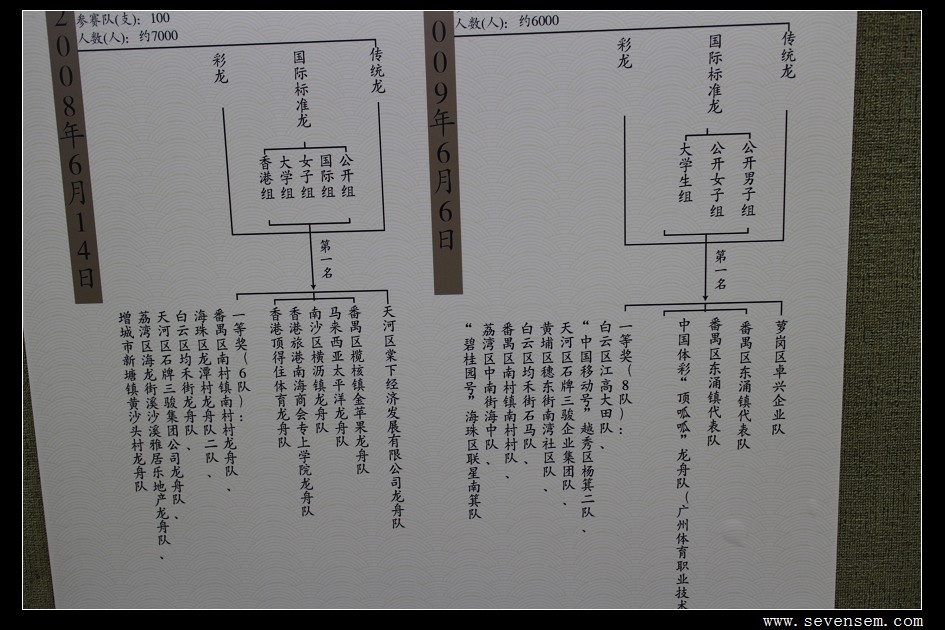 2008年6月14日
参赛队(支)：100
人数(人)：约7000
传统龙
国际标准龙
彩龙
公开组
国际组
女子组
大学组
香港组
第一名
天河区棠下经济发展有限公司龙舟队
番禺区榄核镇金苹果龙舟队
马来西亚太平洋龙舟队
南沙区横沥镇龙舟队
香港旅港南海商会专上学院龙舟队
香港顶得住体育龙舟队
一等奖（6队）：
番禺区南村镇南村村龙舟队、
海珠区龙潭村龙舟队二队、
白云区均禾街龙舟队、
天河区石牌三骏集团公司龙舟队、
荔湾区海龙街溪沙溪雅居乐地产龙舟队、
增城市新塘镇黄沙头村龙舟队
009年6月6日
人数(人)：约6000
传统龙
国际标准龙
彩龙
公开男子组
公开女子组
大学生组
第一名
萝岗区卓兴企业队
番禺区东涌镇代表队
番禺区东涌镇代表队
中国体彩“顶呱呱”龙舟队（广州体育职业技术
一等奖（8队）：
白云区江高大田队、
“中国移动号”越秀区杨箕二队、
天河区石牌三骏企业集团队、
黄埔区穗东街南湾社区队、
白云区均禾街石马队、
番禺区南村镇南村村队、
荔湾区中南街海中队、
“碧桂园号”海珠区联星南箕队
www.sevensem.com